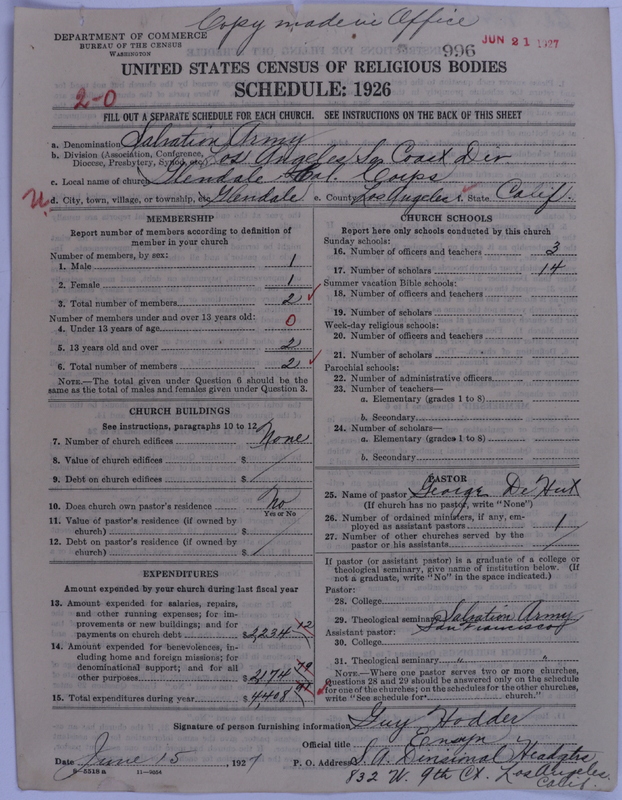 Copy made in Office
DEPARTMENT OF COMMERCE
BUREAU OF THE CENSUS
WASHINGTON
996
JUN 21 1927
UNITED STATES CENSUS OF RELIGIOUS BODIES
SCHEDULE: 1926
2-0
FILL OUT A SEPARATE SCHEDULE FOR EACH CHURCH. SEE INSTRUCTIONS ON THE BACK OF THIS SHEET
a. Denomination Salvation Army
b. Division (Association, Conference, Diocese, Presbytery, Synod, etc.) Los Angeles So Coast Div
c. Local name of church Glendale Cal. Corps
d. City, town, village, or township, etc. Glendale e. County Los Angeles f. State Calif.
MEMBERSHIP
Report number of members according to definition of
member in your church
Number of members, by sex:
1. Male 1
2. Female 1
3. Total number of members 2
Number of members under and over 13 years old:
4. Under 13 years of age 0
5. 13 years old and over 2
6. Total number of members 2
NOTE.—The total given under Question 6 should be the
same as the total of males and females given under Question 3.
CHURCH BUILDINGS
See instructions, paragraphs 10 to 12
7. Number of church edifices None
8. Value of church edifices $
9. Debt on church edifices $
10. Does church own pastor's residence No
Yes or No
11. Value of pastor's residence (if owned by
church) $
12. Debt on pastor's residence (if owned by
church) $
EXPENDITURES
Amount expended by your church during last fiscal year
13. Amount expended for salaries, repairs,
and other running expenses; for im-
provements or new buildings; and for
payments on church debt $2234 12
14. Amount expended for benevolences, in-
cluding home and foreign missions; for
denominational support; and for all
other purposes $2174 79
15. Total expenditures during year $4,408 91
CHURCH SCHOOLS
Report here only schools conducted by this church
Sunday schools:
16. Number of officers and teachers 3
17. Number of scholars 14
Summer vacation Bible schools:
18. Number of officers and teachers
19. Number of scholars
Week-day religious schools:
20. Number of officers and teachers
21. Number of scholars
Parochial schools:
22. Number of administrative officers
23. Number of teachers—
a. Elementary (grades 1 to 8)
b. Secondary
24. Number of scholars—
a. Elementary (grades 1 to 8)
b. Secondary
PASTOR
25. Name of pastor George De
(If church has no pastor, write "None")
26. Number of ordained ministers, if any, em-
ployed as assistant pastors 1
27. Number of other churches served by the
pastor or his assistants
If pastor (or assistant pastor) is a graduate of a college or
theological seminary, give name of institution below. (If
not a graduate, write "No" in the space indicated.)
Pastor:
28. College
29. Theological seminary Salvation Army
San Francisco
Assistant pastor:
30. College
31. Theological seminary " "
NOTE.—Where one pastor serves two or more churches,
Questions 28 and 29 should be answered only on the schedule
for one of the churches; on the schedules for the other churches,
write "See schedule for church."
Signature of person furnishing information Guy Hodder
Official title Ensign
Date June 15, 1927 P. O. Address S. A. Divisional Headqtrs
8-5518 a 11-9054
832 W. 9th Los Angeles.
Calif.